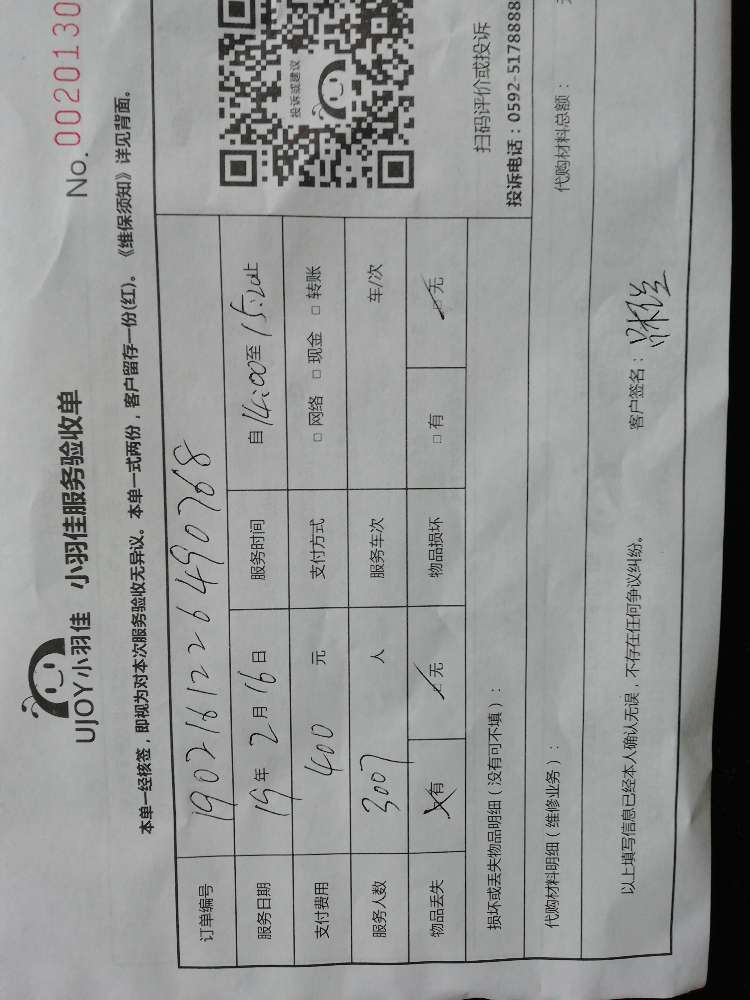 No. 0020130
UJOY小羽佳 小羽佳服务验收单
本单一经核签，即视为对本次服务验收无异议。本单一式两份，客户留存一份(红)。《维保须知》详见背面。
订单编号 1902161226490768
服务日期 19年2月16日 服务时间 自14:00至15:20止
支付费用 400 元 支付方式 □ 网络 □ 现金 □ 转账
服务人数 3007 人 服务车次 车/次
物品丢失 □有 □无 物品损坏 □有 □无
投诉或建议
扫码评价或投诉
投诉电话：0592-5178888
损坏或丢失物品明细（没有可不填）：
代购材料明细（维修业务）： 代购材料总额：
以上填写信息已经本人确认无误，不存在任何争议纠纷。 客户签名：